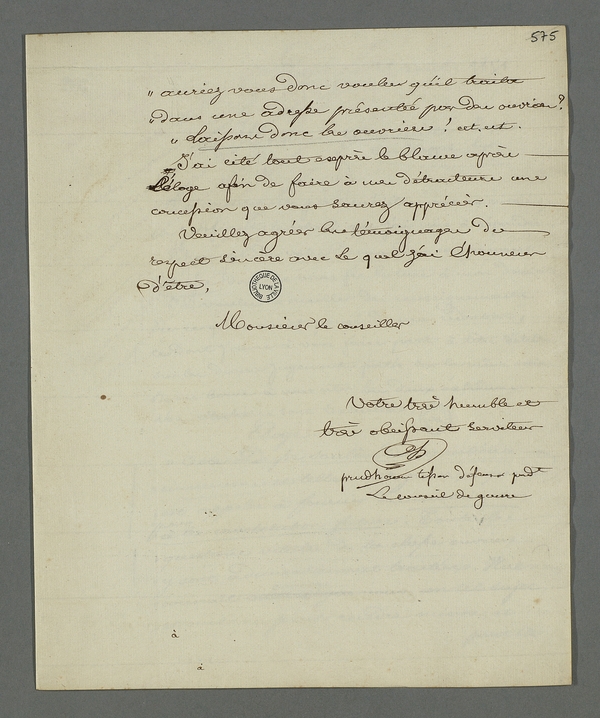 575
" auriez vous donc voulu qu'il traita
" dans une adresse présentée par des ouvriers?
" Laissons donc les ouvriers! et, et.
J'ai cité tout exprès le blame après
L'éloge afin de faire à mes détracteurs une
concession que vous saurez apprécier.
Veuillez agréer les témoignages du
respect sincère avec le quel j'ai l'honneur
d'être,
BIBLIOTHEQUE DE LA VILLE LYON
Monsieur le conseiller
Votre très humble et
très obeissant serviteur
prudhom défenseur pndt
Le conseil de guerre
à
à